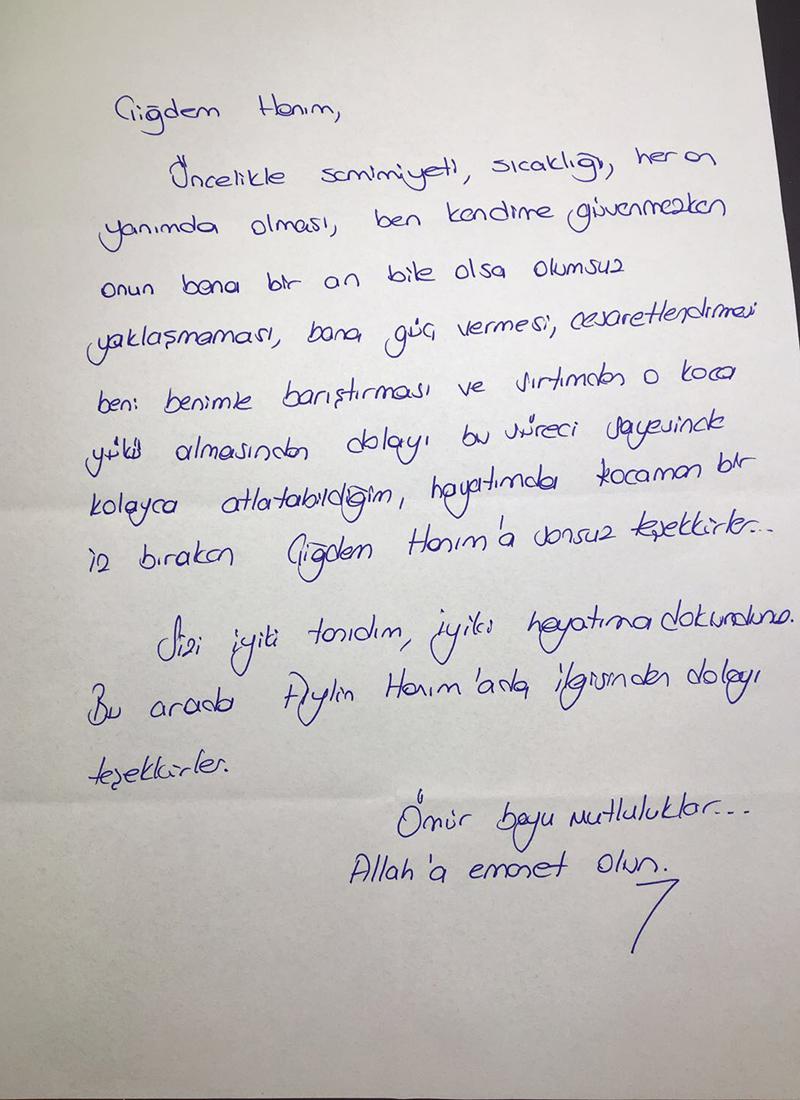 Çiğdem Hanım,
Öncelikle samimiyeti, sıcaklığı, her an
yanımda olması, ben kendime güvenmezken
onun bana bir an bile olsa olumsuz
yaklaşmaması, bana güç vermesi, cesaretlendirmesi
beni benimle barıştırması ve sırtımdan o koca
yükü almasından dolayı bu süreci sayesinde
kolayca atlatabildiğim, hayatımda kocaman bir
iz bırakan Çiğdem Hanım'a sonsuz teşekkürler...
Sizi iyiki tanıdım, iyiki hayatıma dokundunuz.
Bu arada Aylin Hanım'ada ilgisinden dolayı
teşekkürler.
Ömür boyu mutluluklar...
Allah'a emanet olun.